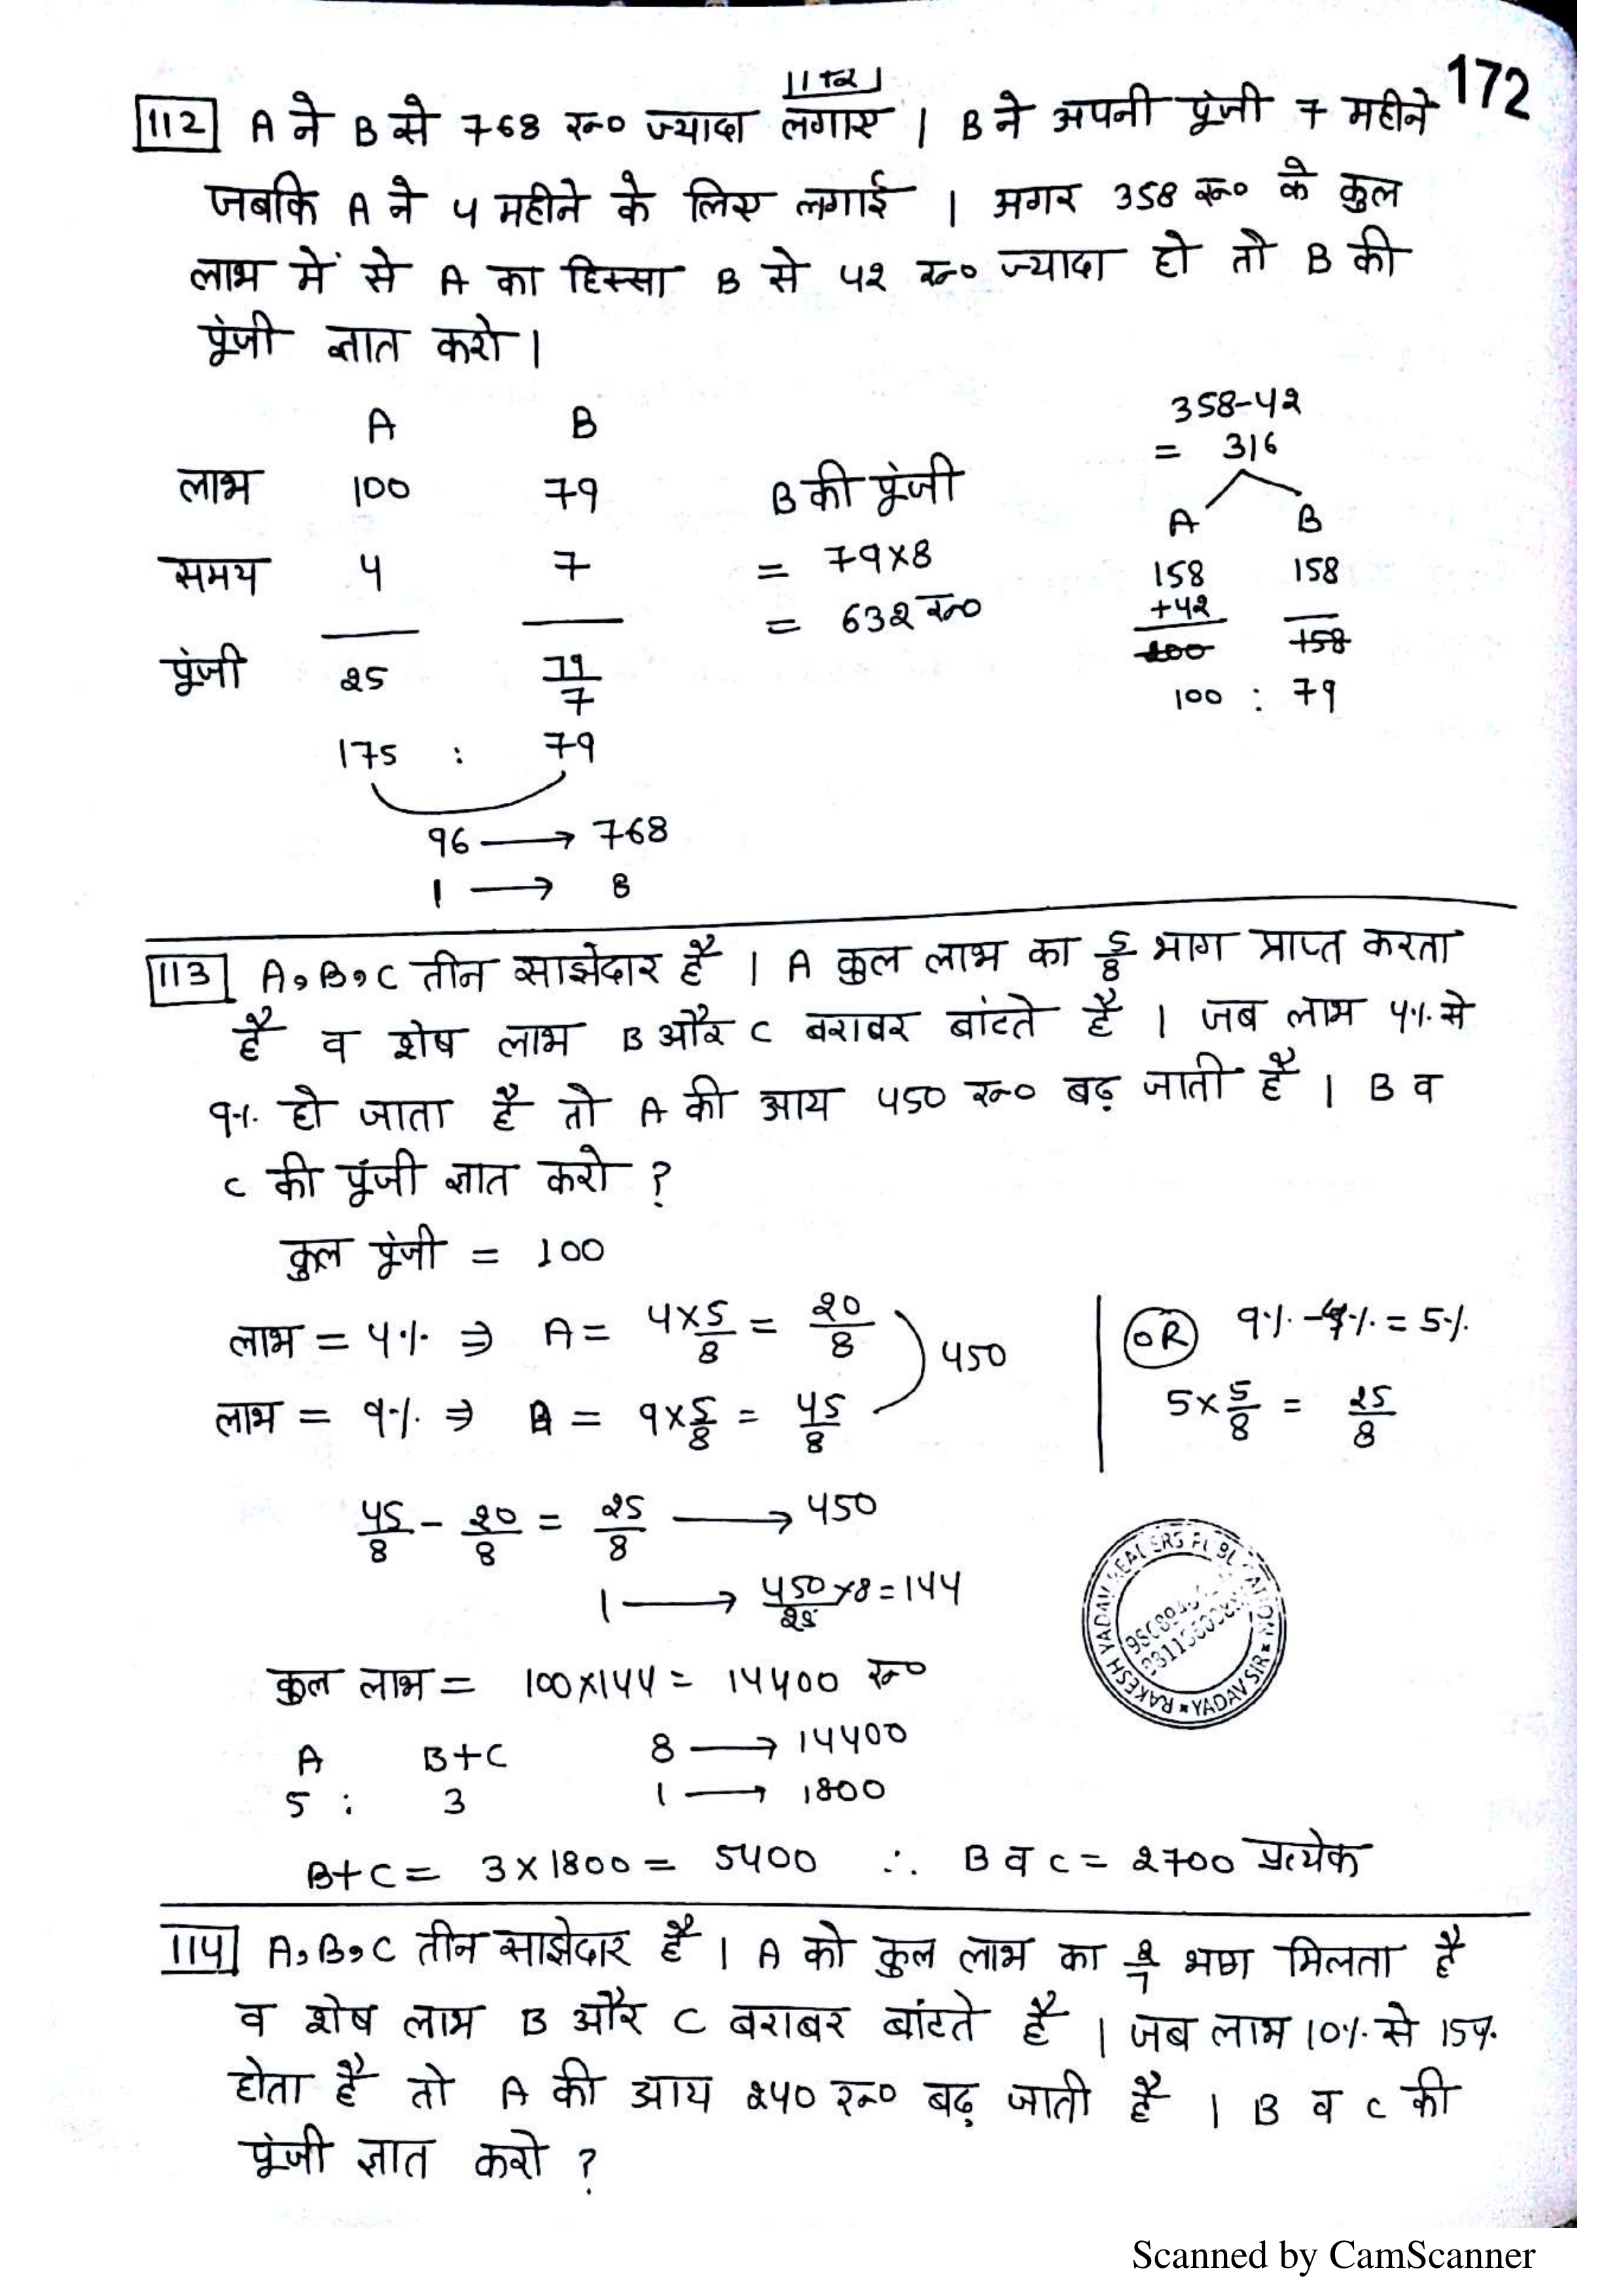 172
112 A ने B से 768 रू० ज्यादा लगाए । B ने अपनी पूंजी 7 महीने
जबकि A ने 4 महीने के लिए लगाई । अगर 358 रू० के कुल
लाभ में से A का हिस्सा B से 42 रू० ज्यादा हो तो B की
पूंजी ज्ञात करो ।
A B
लाभ 100 79
समय 4 7
पूंजी 25 79/7
175 : 79
96 → 768
1 → 8
B की पूंजी
= 79×8
= 632 रू०
358-42
= 316
A B
158 158
+42
200 158
100 : 79
113 A,B,C तीन साझेदार है । A कुल लाभ का 5/8 भाग प्राप्त करता
है व शेष लाभ B और C बराबर बांटते है । जब लाभ 4% से
9% हो जाता है तो A की आय 450 रू० बढ़ जाती है । B व
C की पूंजी ज्ञात करो ?
कुल पूंजी = 100
लाभ = 4% ⇒ A = 4×5/8 = 20/8
लाभ = 9% ⇒ A = 9×5/8 = 45/8
450
OR 9%-4% = 5%
5×5/8 = 25/8
45/8 - 20/8 = 25/8 → 450
1 → 450/25×8=144
कुल लाभ = 100×144 = 14400 रू०
A B+C 8 → 14400
5 : 3 1 → 1800
B+C = 3×1800 = 5400 ∴ B व C = 2700 प्रत्येक
RAKESH YADAV YADAV SIR
114 A,B,C तीन साझेदार है । A को कुल लाभ का 2/7 भाग मिलता है
व शेष लाभ B और C बराबर बांटते है । जब लाभ 10% से 15%
होता है तो A की आय 240 रू० बढ़ जाती है । B व C की
पूंजी ज्ञात करो ?
Scanned by CamScanner